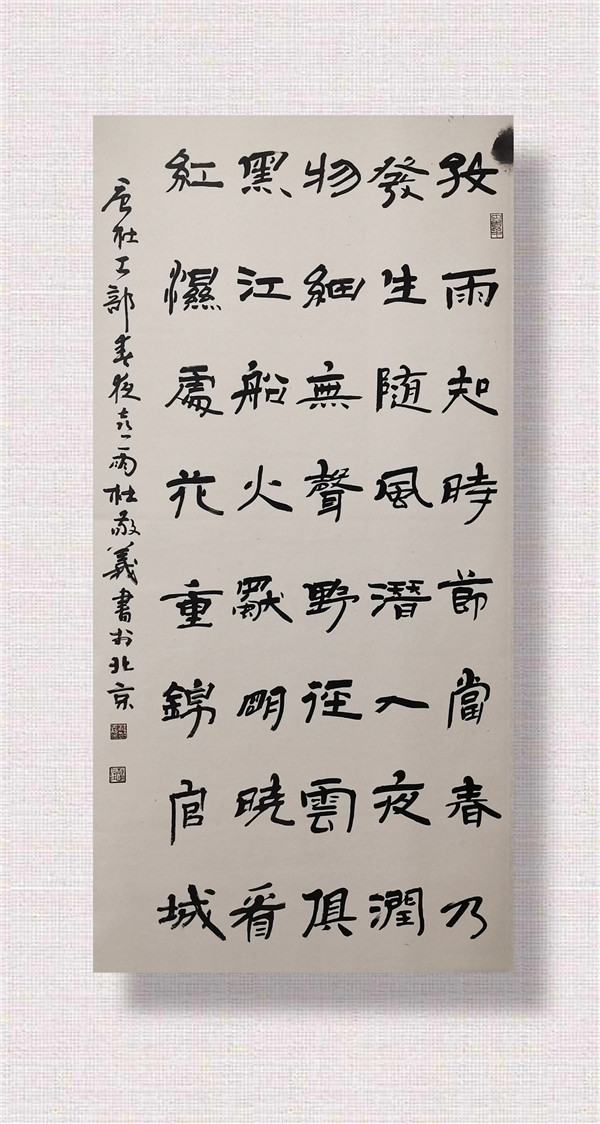 好雨知時節當春乃
發生隨風潛入夜潤
物細無聲野徑雲俱
黑江船火獨明曉看
紅濕處花重錦官城
唐杜工部春夜喜雨杜敬義書於北京